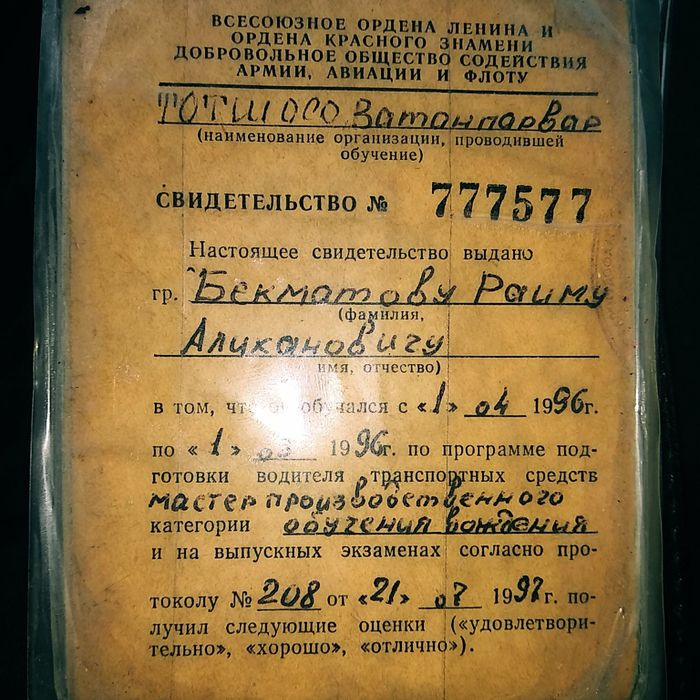 ВСЕСОЮЗНОЕ ОРДЕНА ЛЕНИНА И
ОРДЕНА КРАСНОГО ЗНАМЕНИ
ДОБРОВОЛЬНОЕ ОБЩЕСТВО СОДЕЙСТВИЯ
АРМИИ, АВИАЦИИ И ФЛОТУ
ТОТШ ОСО Ватанпарвар
(наименование организации, проводившей
обучение)
СВИДЕТЕЛЬСТВО № 777577
Настоящее свидетельство выдано
гр. Бекматову Раиму
(фамилия,
Алихановичу
имя, отчество)
в том, что он обучался с «1» 04 1996г.
по «1» 1996г. по программе под-
готовки водителя транспортных средств
мастер производственного
категории обучения вождения
и на выпускных экзаменах согласно про-
токолу № 208 от «21» 07 1997г. по-
лучил следующие оценки («удовлетвори-
тельно», «хорошо», «отлично»).